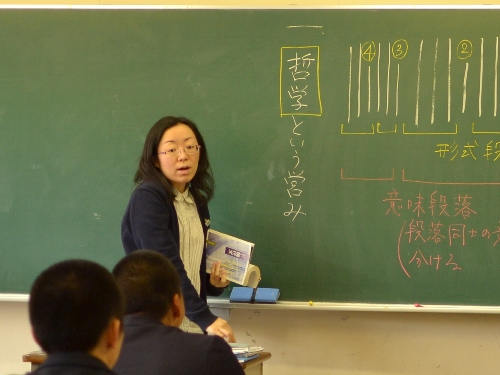 一 哲学という営み
④ ③ ②
形式段
意味段落
(段落同士の
分ける